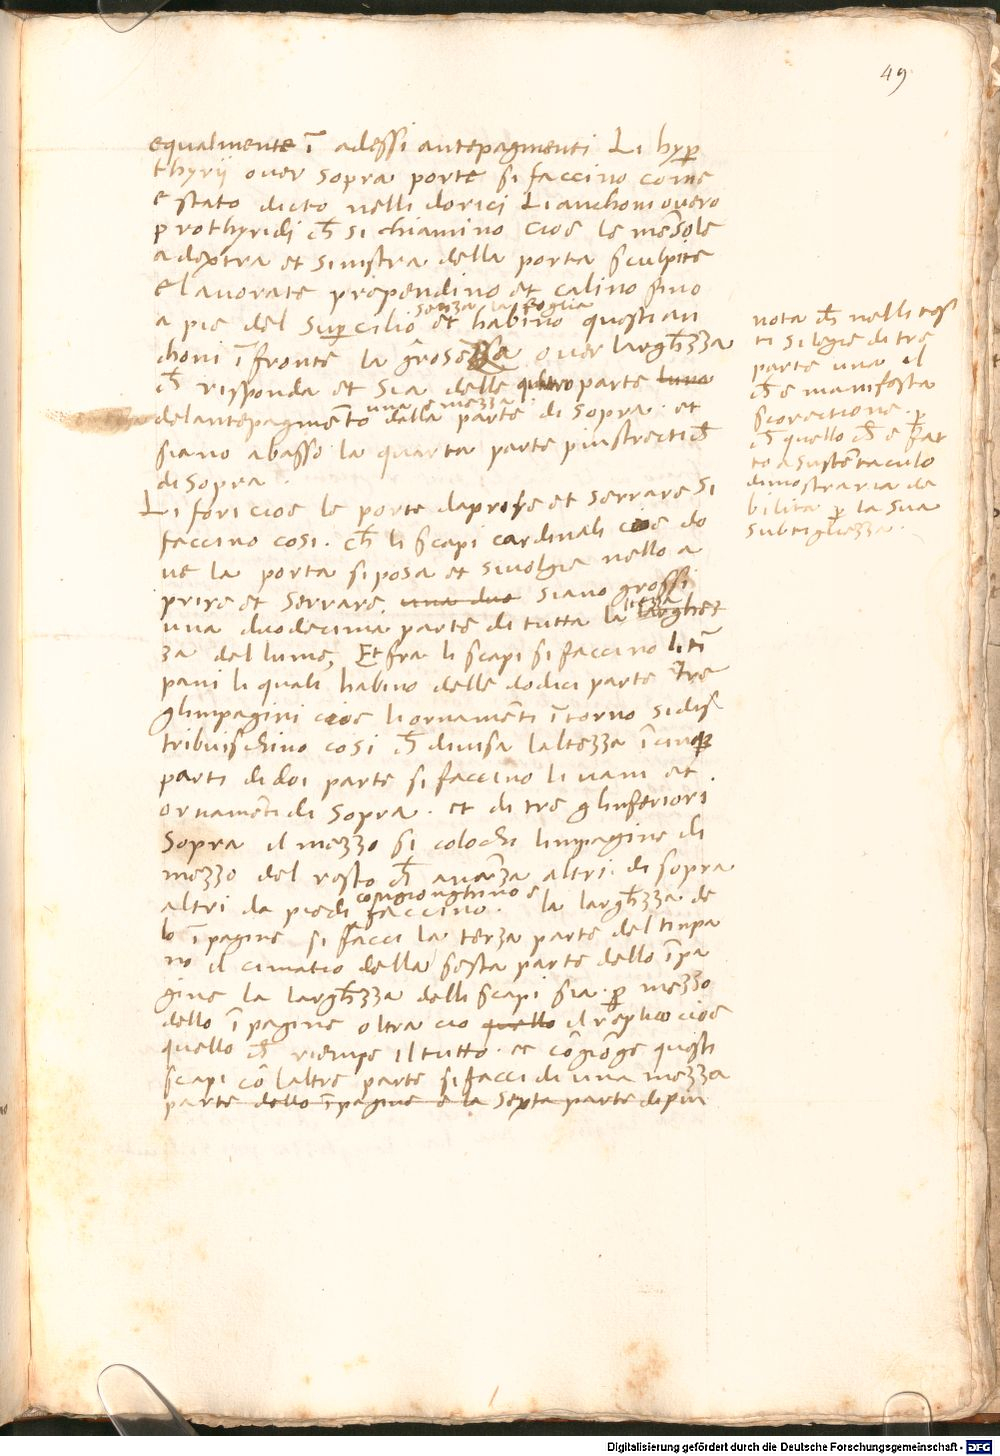 49
equalmente ī adessi antepagmenti Li hyp̄
thyrij over sopra porte si faccino come
e stato dicto nelli dorici Li anchoni overo
prothyridi ch̄ si chiamino cioe le mēsole
a dextra et sinistra della porta sculpite
e lavorate prependino et calino fino
senza la foglia
a pie del sup̄cilio et habino questi an
choni ī fronte la grosezza over largh̄zza
ch̄ risponda et sia delle quatro parte luna
una e mezza
del antepagmēto dalla parte di sopra. et
siano abasso la quarta parte piu strecti ch̄
di sopra.
Li fori cioe le porte da prire et serrare si
faccino cosi. ch̄ li scapi cardinali cioe do
ve la porta si posa et si volgie nello a
prire et serrare. una due siano grossi
una duodecima parte di tutta la larghez
za del lume, Et fra li scapi si faccino li tī
pani li quali habino delle dodici parte tre
gl impagini cioe li ornamēti ītorno si dis
tribuischino cosi ch̄ divisa laltezza ī cinq3
parti di doi parte si faccino li vani et
ornamēti di sopra. et di tre gl inferiori
Sopra il mezzo si colochi limpagine di
mezzo del resto ch̄ avāza altri. di sopra
congionghino e
altri da piedi faccino. la largh̄zza de
lo ī pagine si facci la terza parte del timpa
no il cimatio della sesta parte dello īpa
gine la largh̄zza delli scapi sia. p̄ mezzo
dello ī pagine oltra cio quello il replico cioe
quello ch̄ riempe il tutto. et cōgiōge questi
scapi cō laltre parte si facci di una mezza
parte dello īpagine e la sexta parte di piu
nota ch̄ nelli tes
ti si legie di tre
parte una il
ch̄ e manifesta
scorectione. p̄
ch̄ quello ch̄ e fat
to a sustētaculo
dimostraria de
bilita p̄ la sua
subtigliezza.
Digitalisierung gefördert durch die Deutsche Forschungsgemeinschaft - DFG